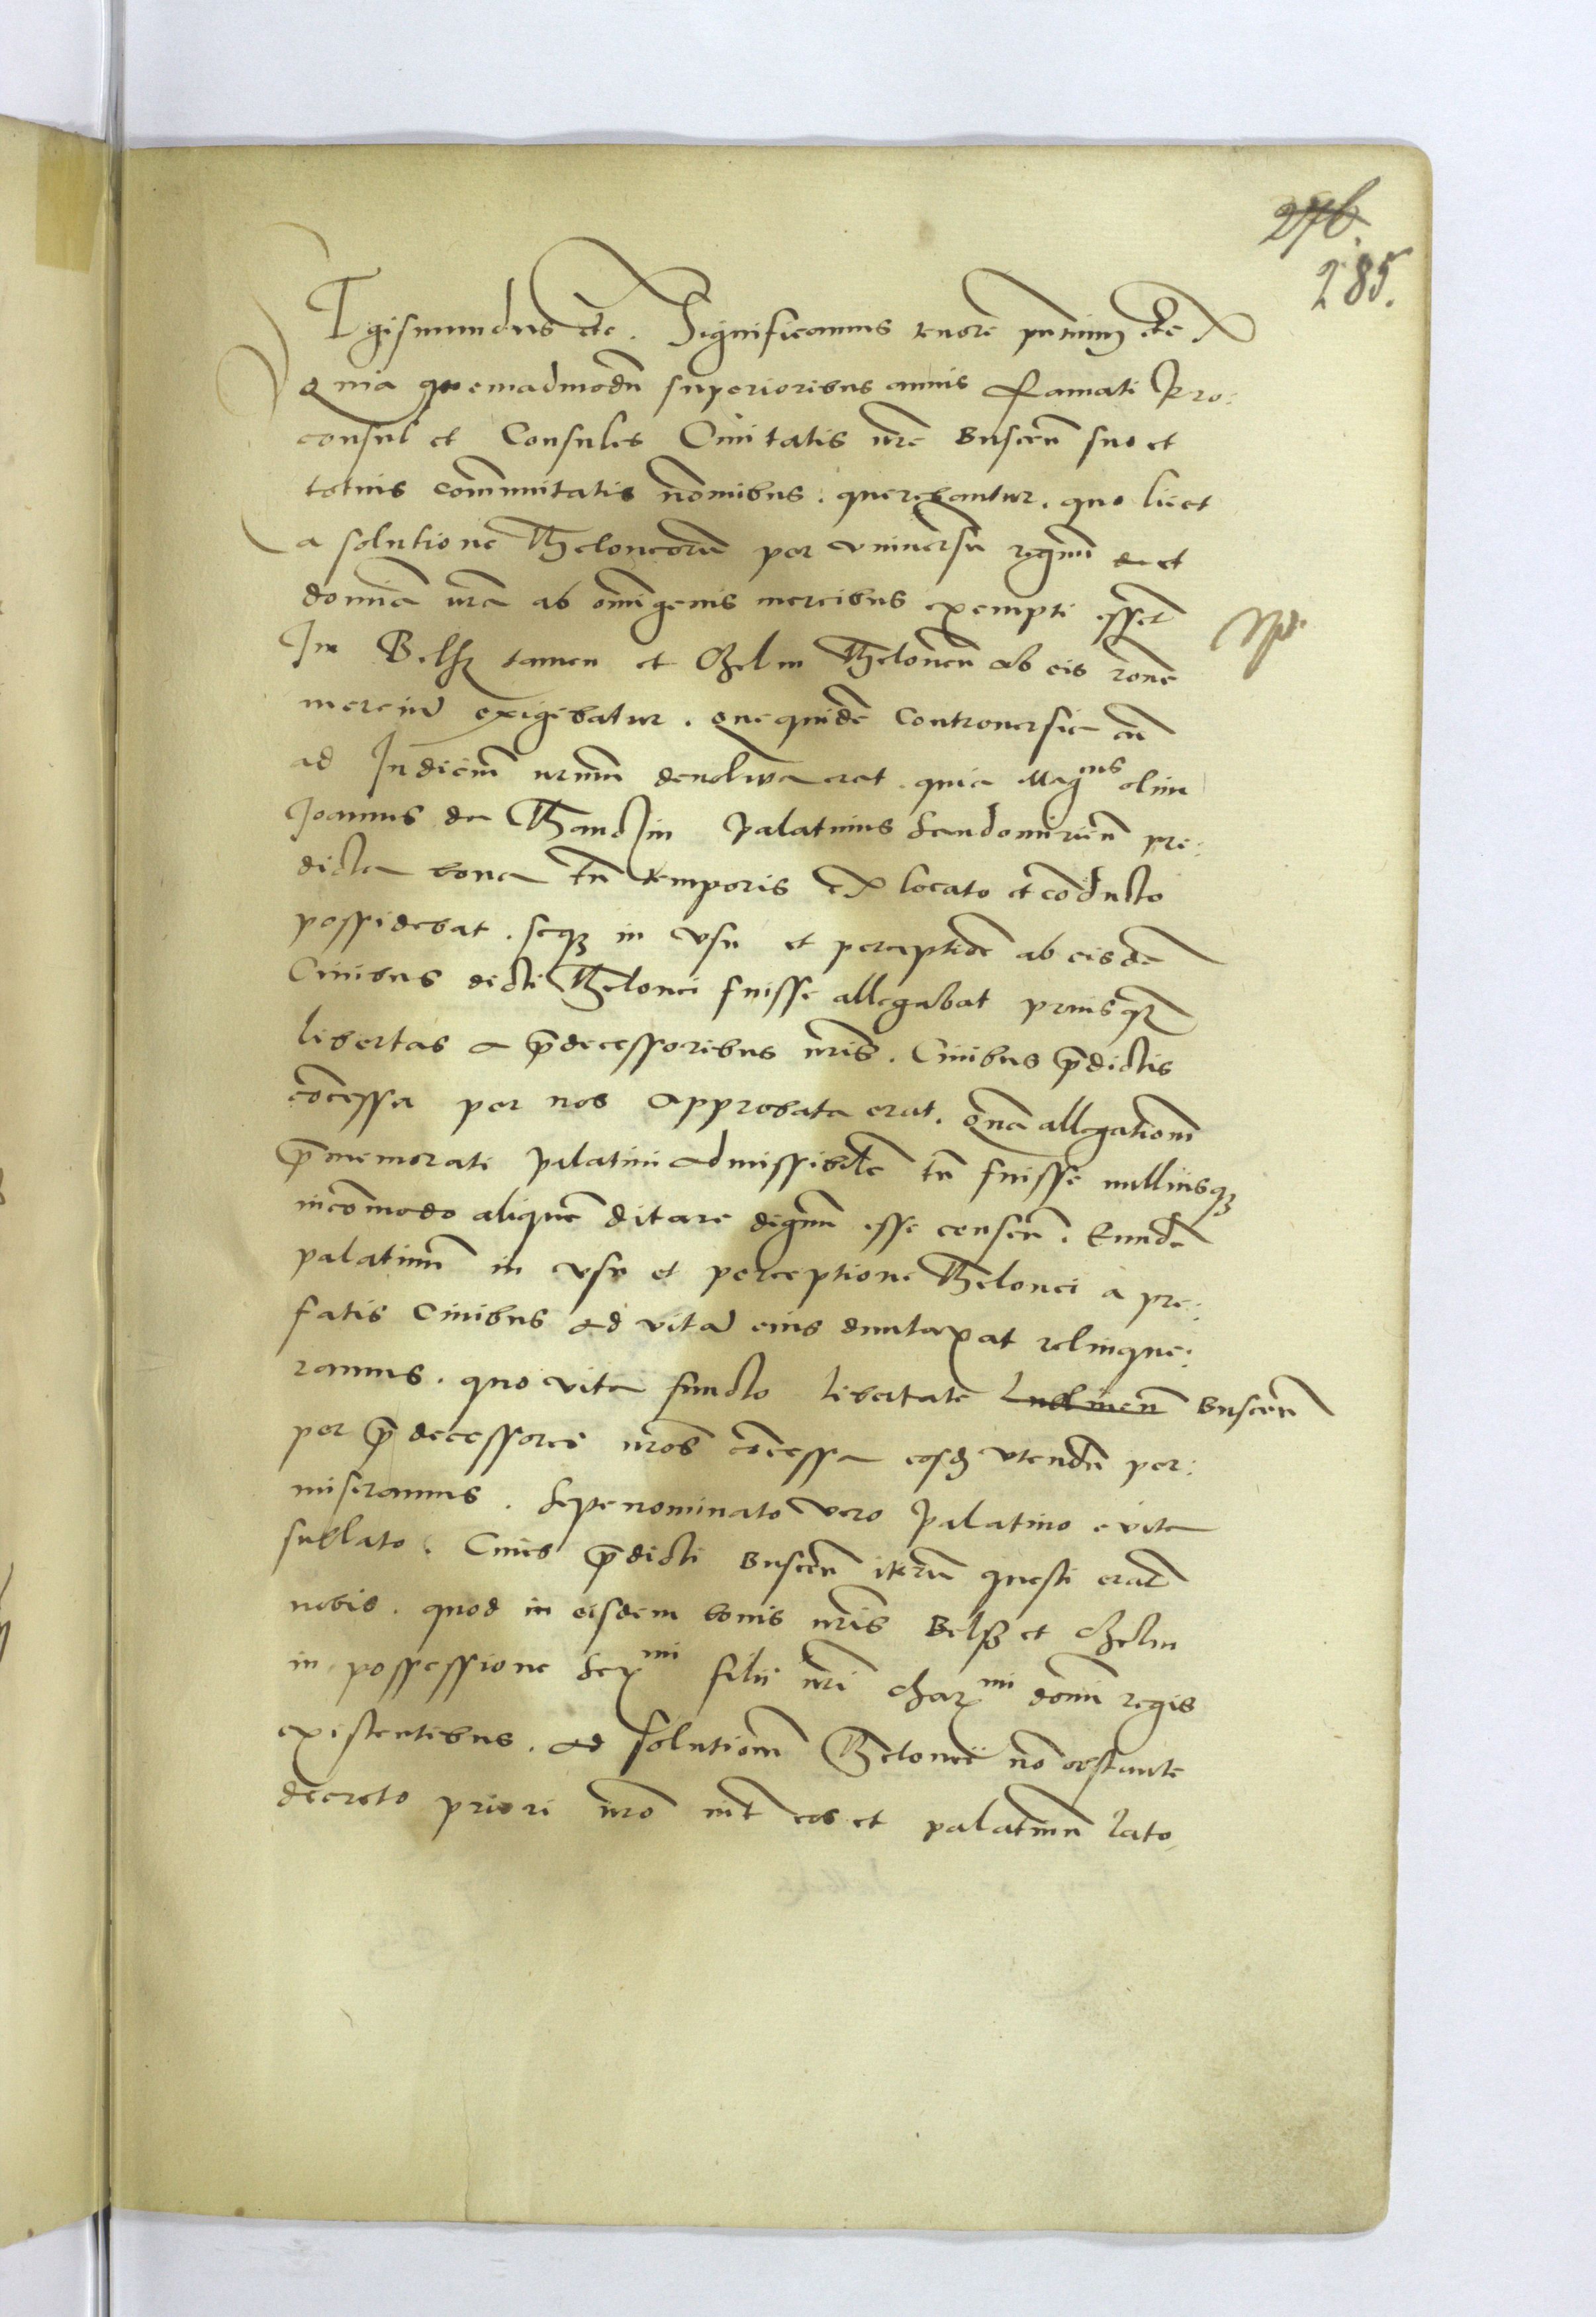 276.
285.
Sigismundus etc. Significamus tenore pntium etc
Quia quemadmodu superioribus annis famati Pro:
consul et Consules Civitatis nre Buscen suo et
totius communitatis nomibus. querebantur. quo licet
a solutione Theloneoru per universu regnu et
domia nra ab omigenis mercibus exempti essent
In Belsz tamen et Chelm Theloneu ab eis rone
merciu exigebatur. Que quide controversia cu
ad Judiciu nrum devoluta erat. quia Magcus olim
Joannes de Thanczin Palatinus Sandomirien pre:
dicta bona tu temporis ex locato et coducto
possidebat. seq3 in usu et perceptioe ab eisde
Civibus dicti Thelonei fuisse allegabat priusq3
libertas a pdecessoribus nris. Civibus pdictis
cocessa per nos approbata erat. Qua allegationem
pmemorati Palatini admissibile tu fuisse nulliusq3
incomodo aliquem ditare dignum esse censen. Eunde
palatinum in usu et perceptione Thelonei a pre:
fatis Civibus ad vitam eius duntaxat relinque:
ramus. quo vita functo libertate Lublinen Buscen
per pdecessores nros cocessa eosd utendu per:
miseramus. Sepenominato vero Palatino e vita
sublato. Cives pdicti Buscen iteru questi erant
nobis. quod in eisdem bonis nris Belsz et Chelm
in possessione Sermi filii nri charmi domi regis
existentibus. ad solutionem Thelonei no obstante
decreto priori nro int eos et palatinum lato